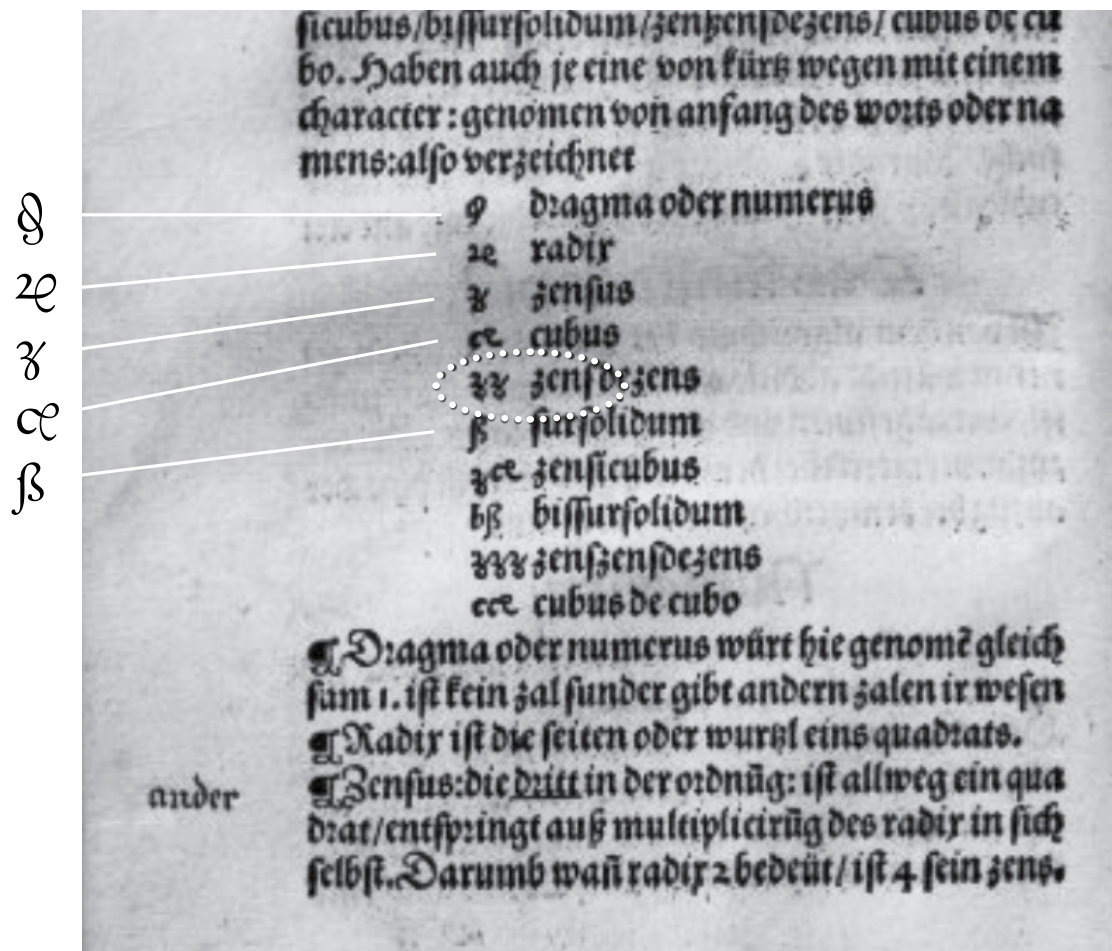 sicubus/bissursolidum/zenszensdezens/cubus de cu
bo. Haben auch je eine von kürtz wegen mit einem
character: genomen von anfang des worts oder na
mens: also verzeichnet
dragma oder numerus
radix
zensus
cubus
zensdezens
ß sursolidum
zensicubus
bß bissursolidum
zenszensdezens
cubus de cubo
¶ Dragma oder numerus würt hie genomē gleich
sam 1. ist kein zal sunder gibt andern zalen ir wesen
¶ Radix ist die seiten oder wurtzl eins quadrats.
¶ Zensus: die dritt in der ordnūg: ist allweg ein qua
ander
drat/entspringt auß multiplicirūg des radix in sich
selbst. Darumb wañ radix 2 bedeüt/ist 4 sein zens.
ß